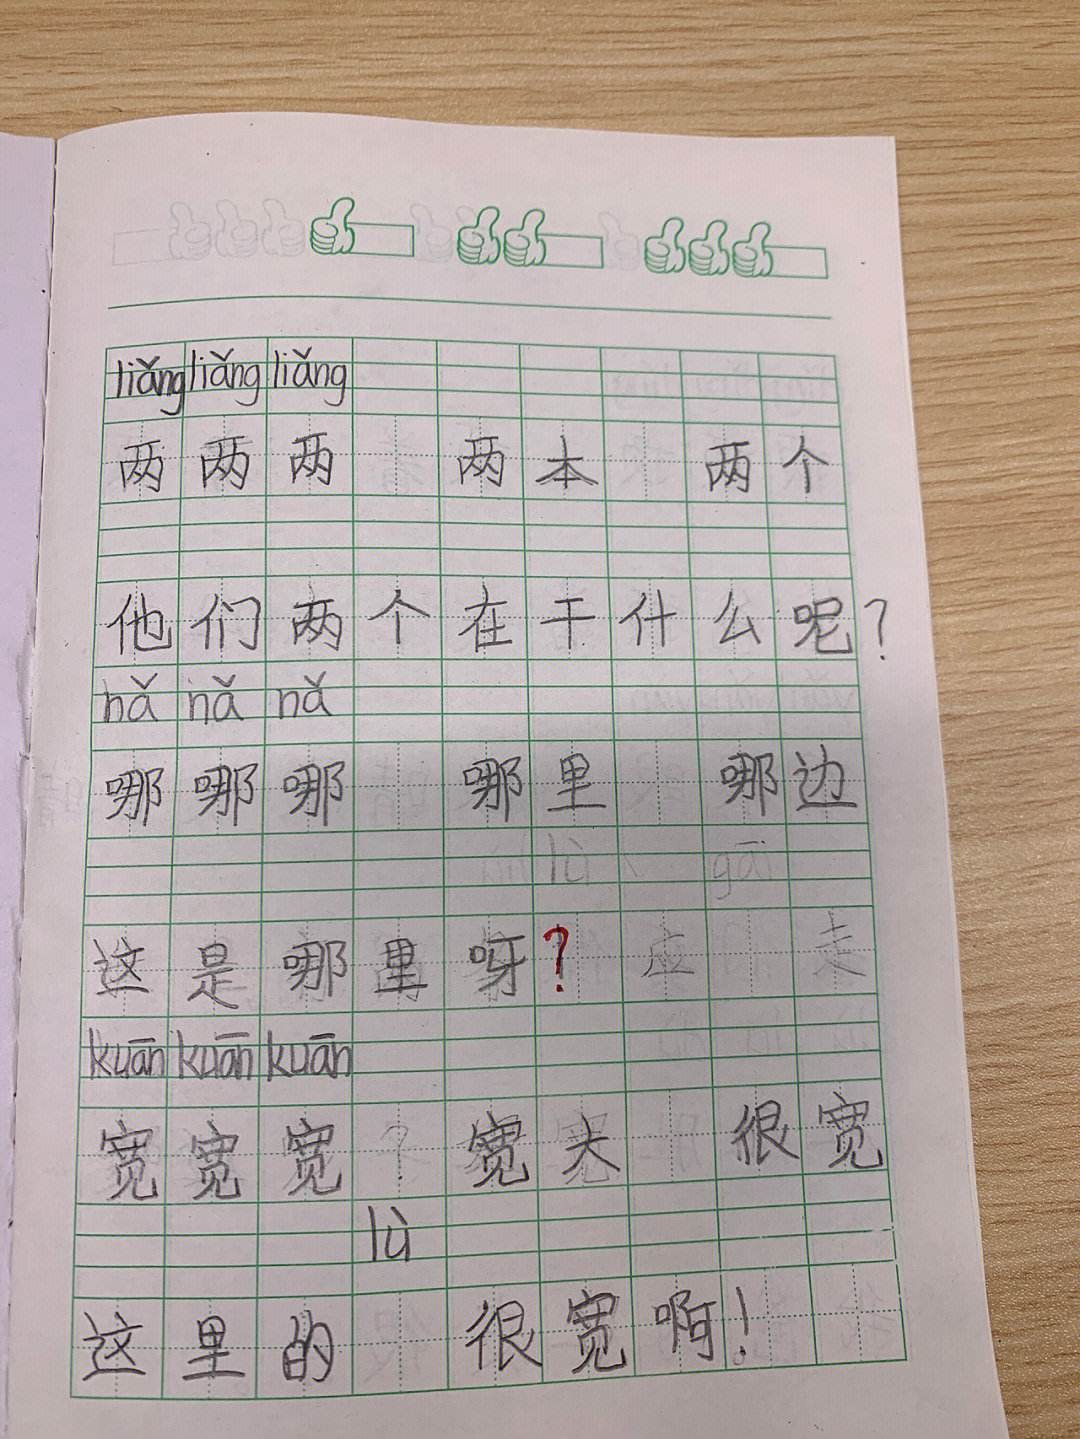 liǎng liǎng liǎng
两 两 两 两 本 两 个
他 们 两 个 在 干 什 么 呢?
nǎ nǎ nǎ
哪 哪 哪 哪 里 哪 边
这 是 哪 里 呀?
kuān kuān kuān
宽 宽 宽 宽 大 很 宽
lù
这 里 的 很 宽 啊!